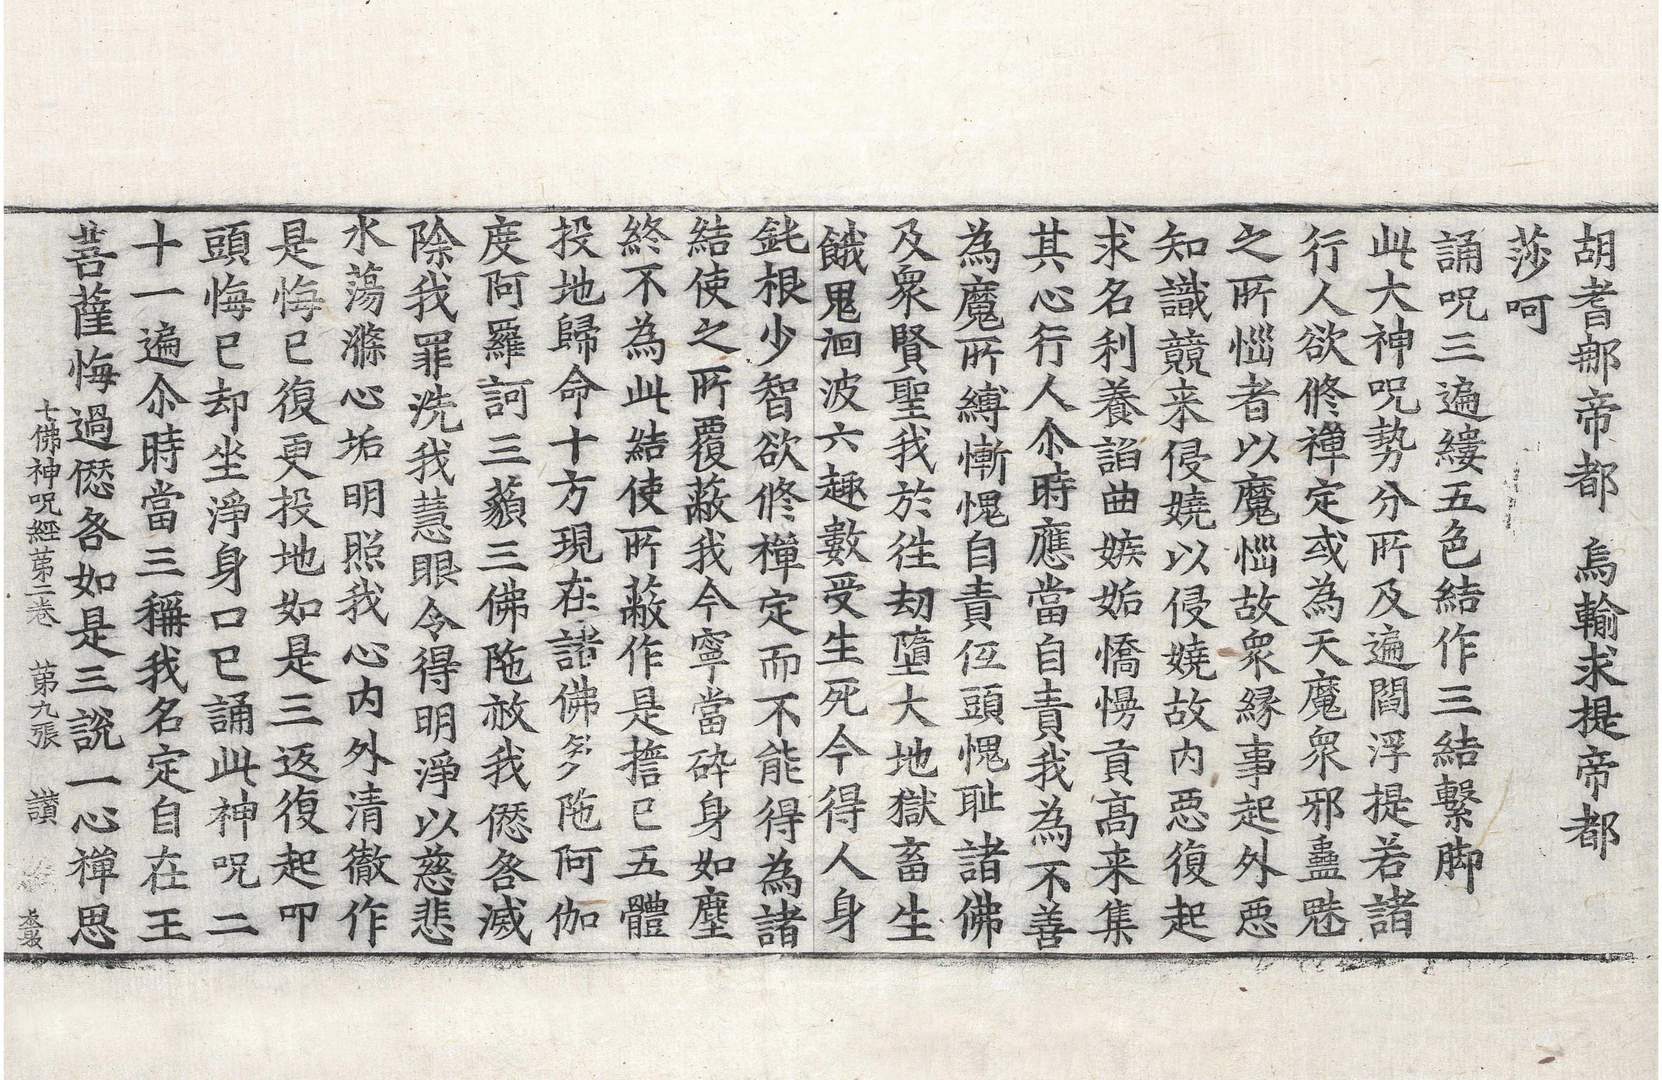 胡耆㖠帝都　烏輸求提帝都
莎呵
誦呪三遍縷五色結作三結繫脚
此大神呪勢分所及遍閻浮提若諸
行人欲修禪定或為天魔衆邪蠱魅
之所惱者以魔惱故衆緣事起外惡
知識競来侵嬈以侵嬈故内惡復起
求名利養諂曲嫉妬憍慢貢高来集
其心行人尒時應當自責我為不善
為魔所縛慚愧自責伍頭愧耻諸佛
及衆賢聖我於往劫墮大地獄畜生
餓鬼洄波六趣數受生死今得人身
鈍根少智欲修禪定而不能得為諸
結使之所覆蔽我今寧當碎身如塵
終不為此結使所蔽作是擔已五體
投地歸命十方現在諸佛多陁阿伽
度阿羅訶三藐三佛陁赦我僁咎滅
除我罪洗我慧眼令得明淨以慈悲
水蕩滌心垢明照我心内外清徹作
是悔已復更投地如是三返復起叩
頭悔已却坐淨身口已誦此神呪二
十一遍尒時當三稱我名定自在王
菩薩悔過僁咎如是三說一心禪思
七佛神呪經第二卷　第九張　讃